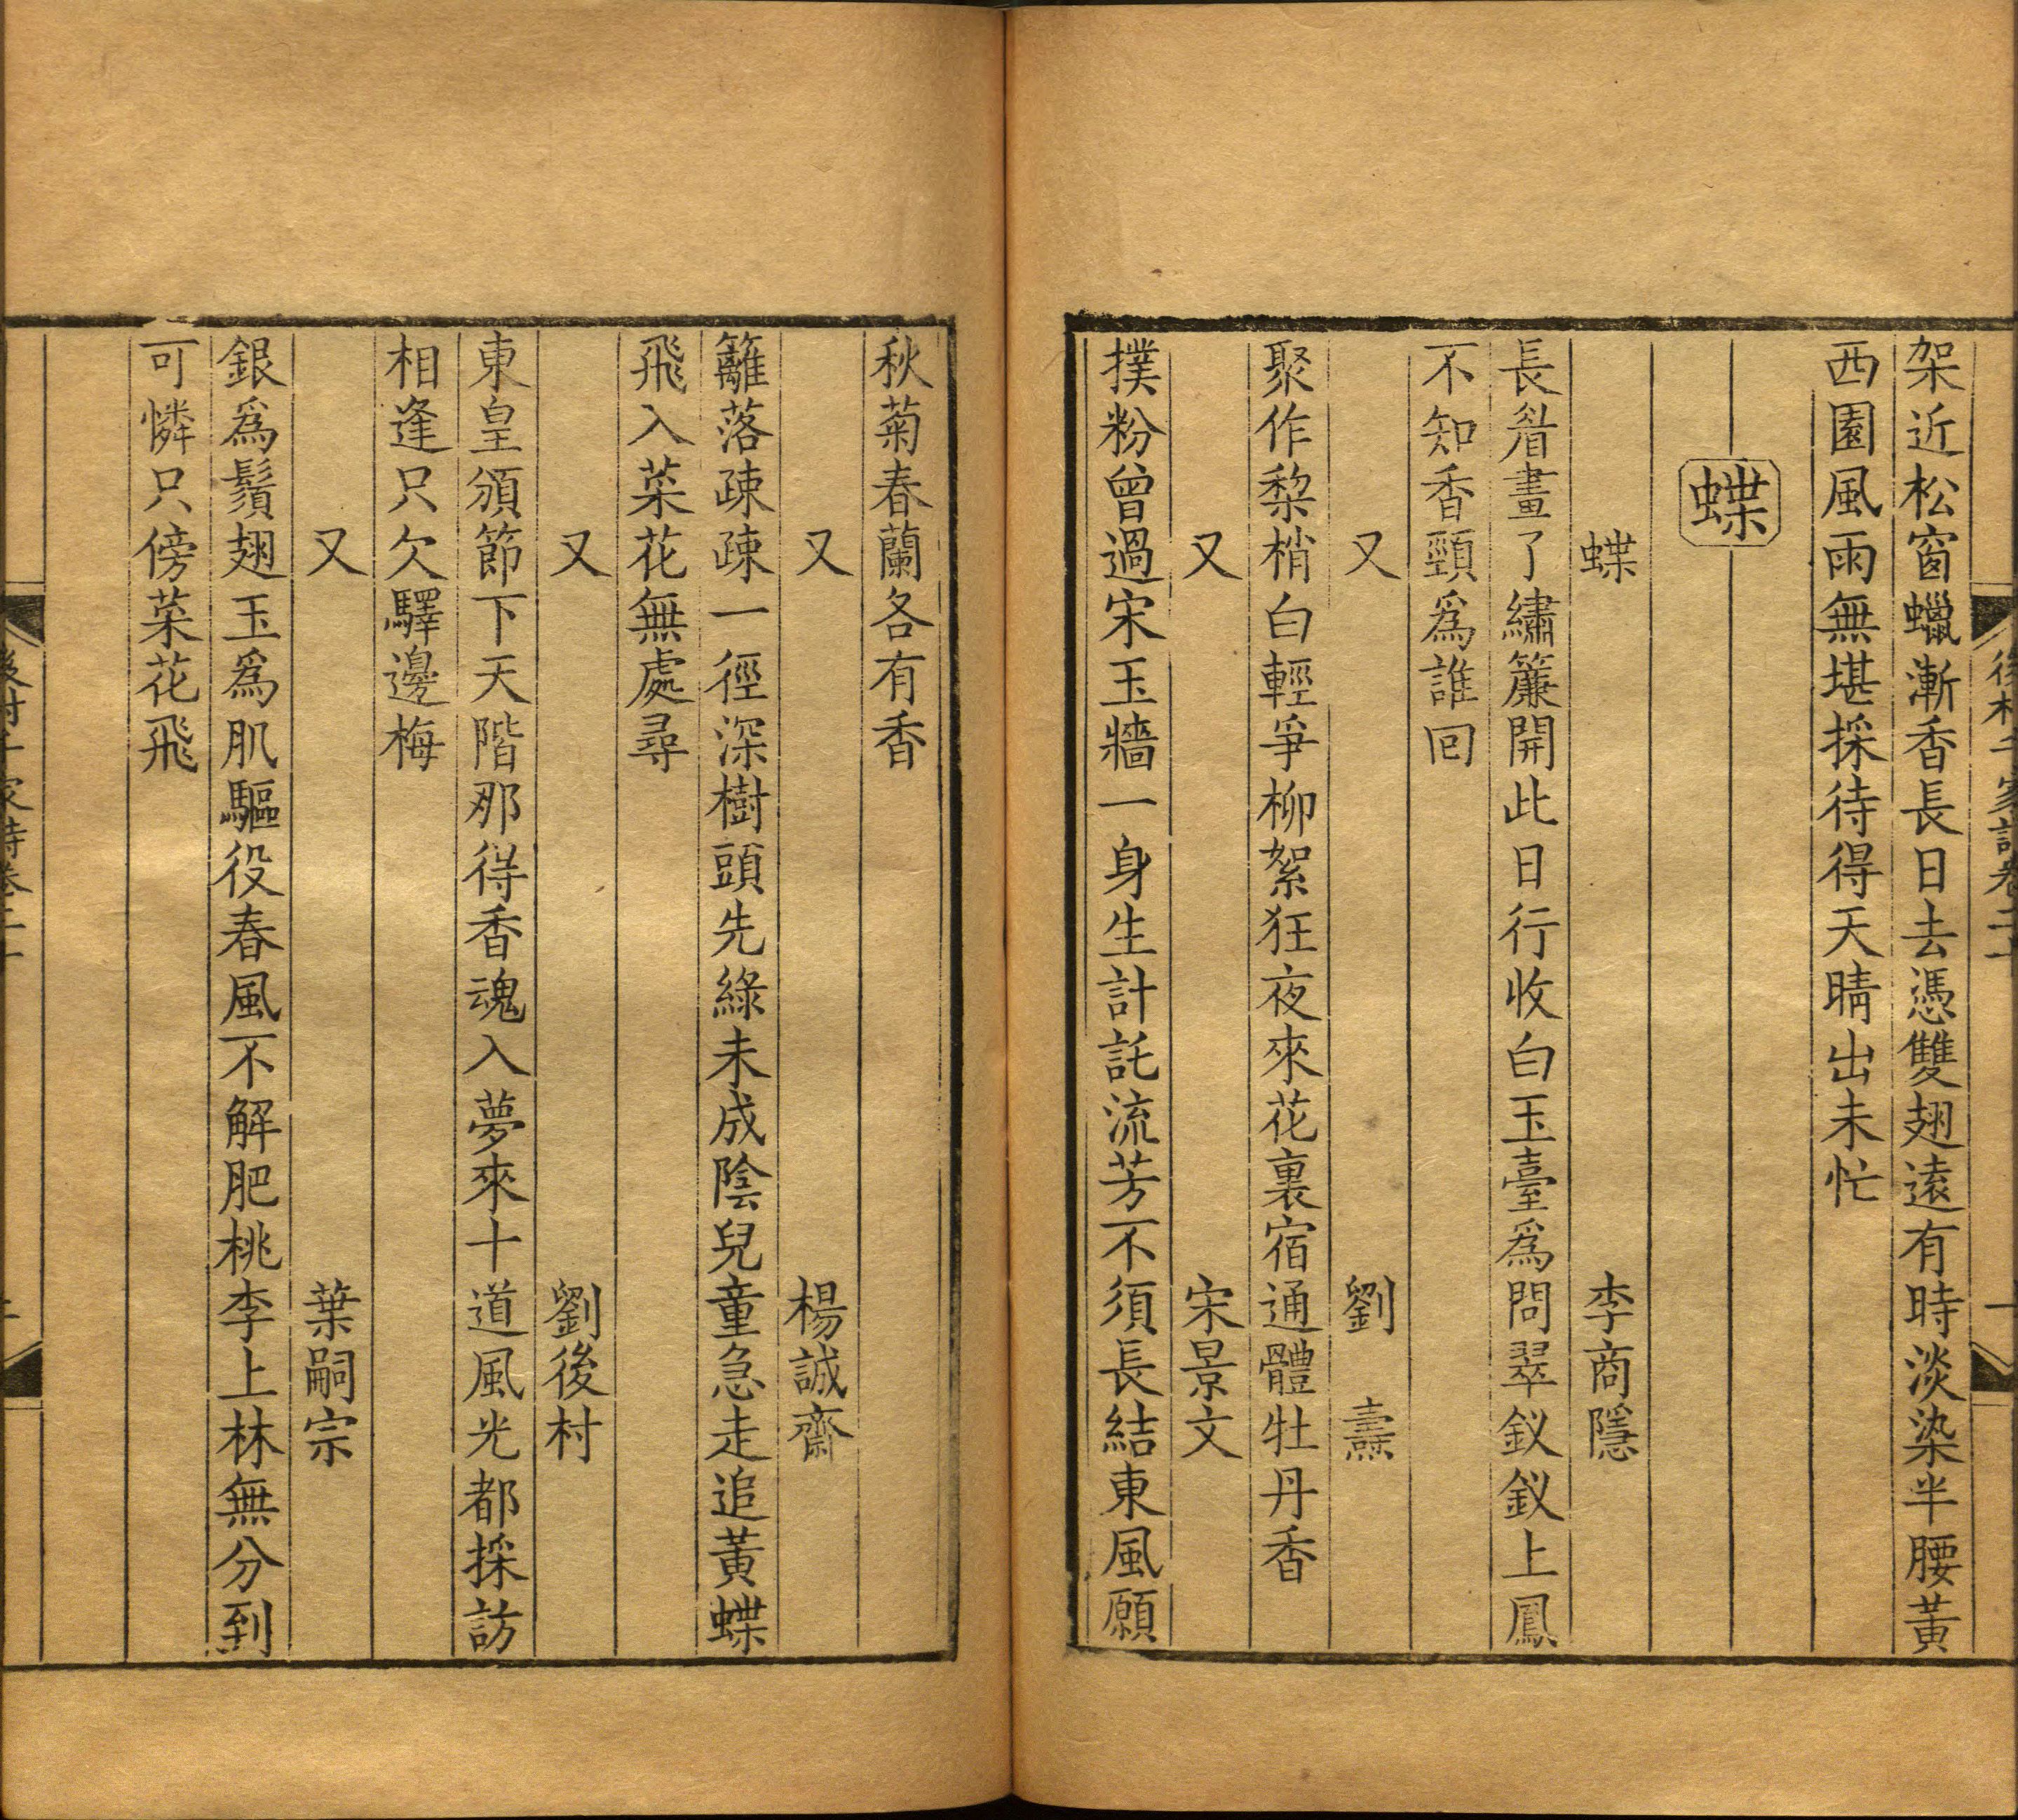 架近松窗蠟漸香長日去憑雙翅遠有時淡染半腰黃
西園風雨無堪採待得天晴出未忙
蝶
蝶 李商隱
長眉畫了繡簾開此日行收白玉臺爲問翠釵釵上鳳
不知香頸爲誰回
又 劉 燾
聚作棃梢白輕爭柳絮狂夜來花裏宿通體牡丹香
又 宋景文
撲粉曾過宋玉牆一身生計託流芳不須長結東風願
秋菊春蘭各有香
又 楊誠齋
籬落疎疎一徑深樹頭先綠未成陰兒童急走追黃蝶
飛入菜花無處尋
又 劉後村
東皇頒節下天階那得香魂入夢來十道風光都採訪
相逢只欠驛邊梅
又 葉嗣宗
銀爲鬚翅玉爲肌驅役春風不解肥桃李上林無分到
可憐只傍菜花飛